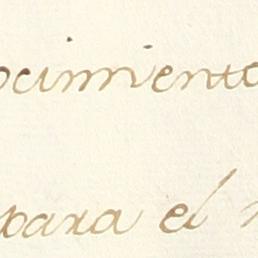 ocimiento
para el